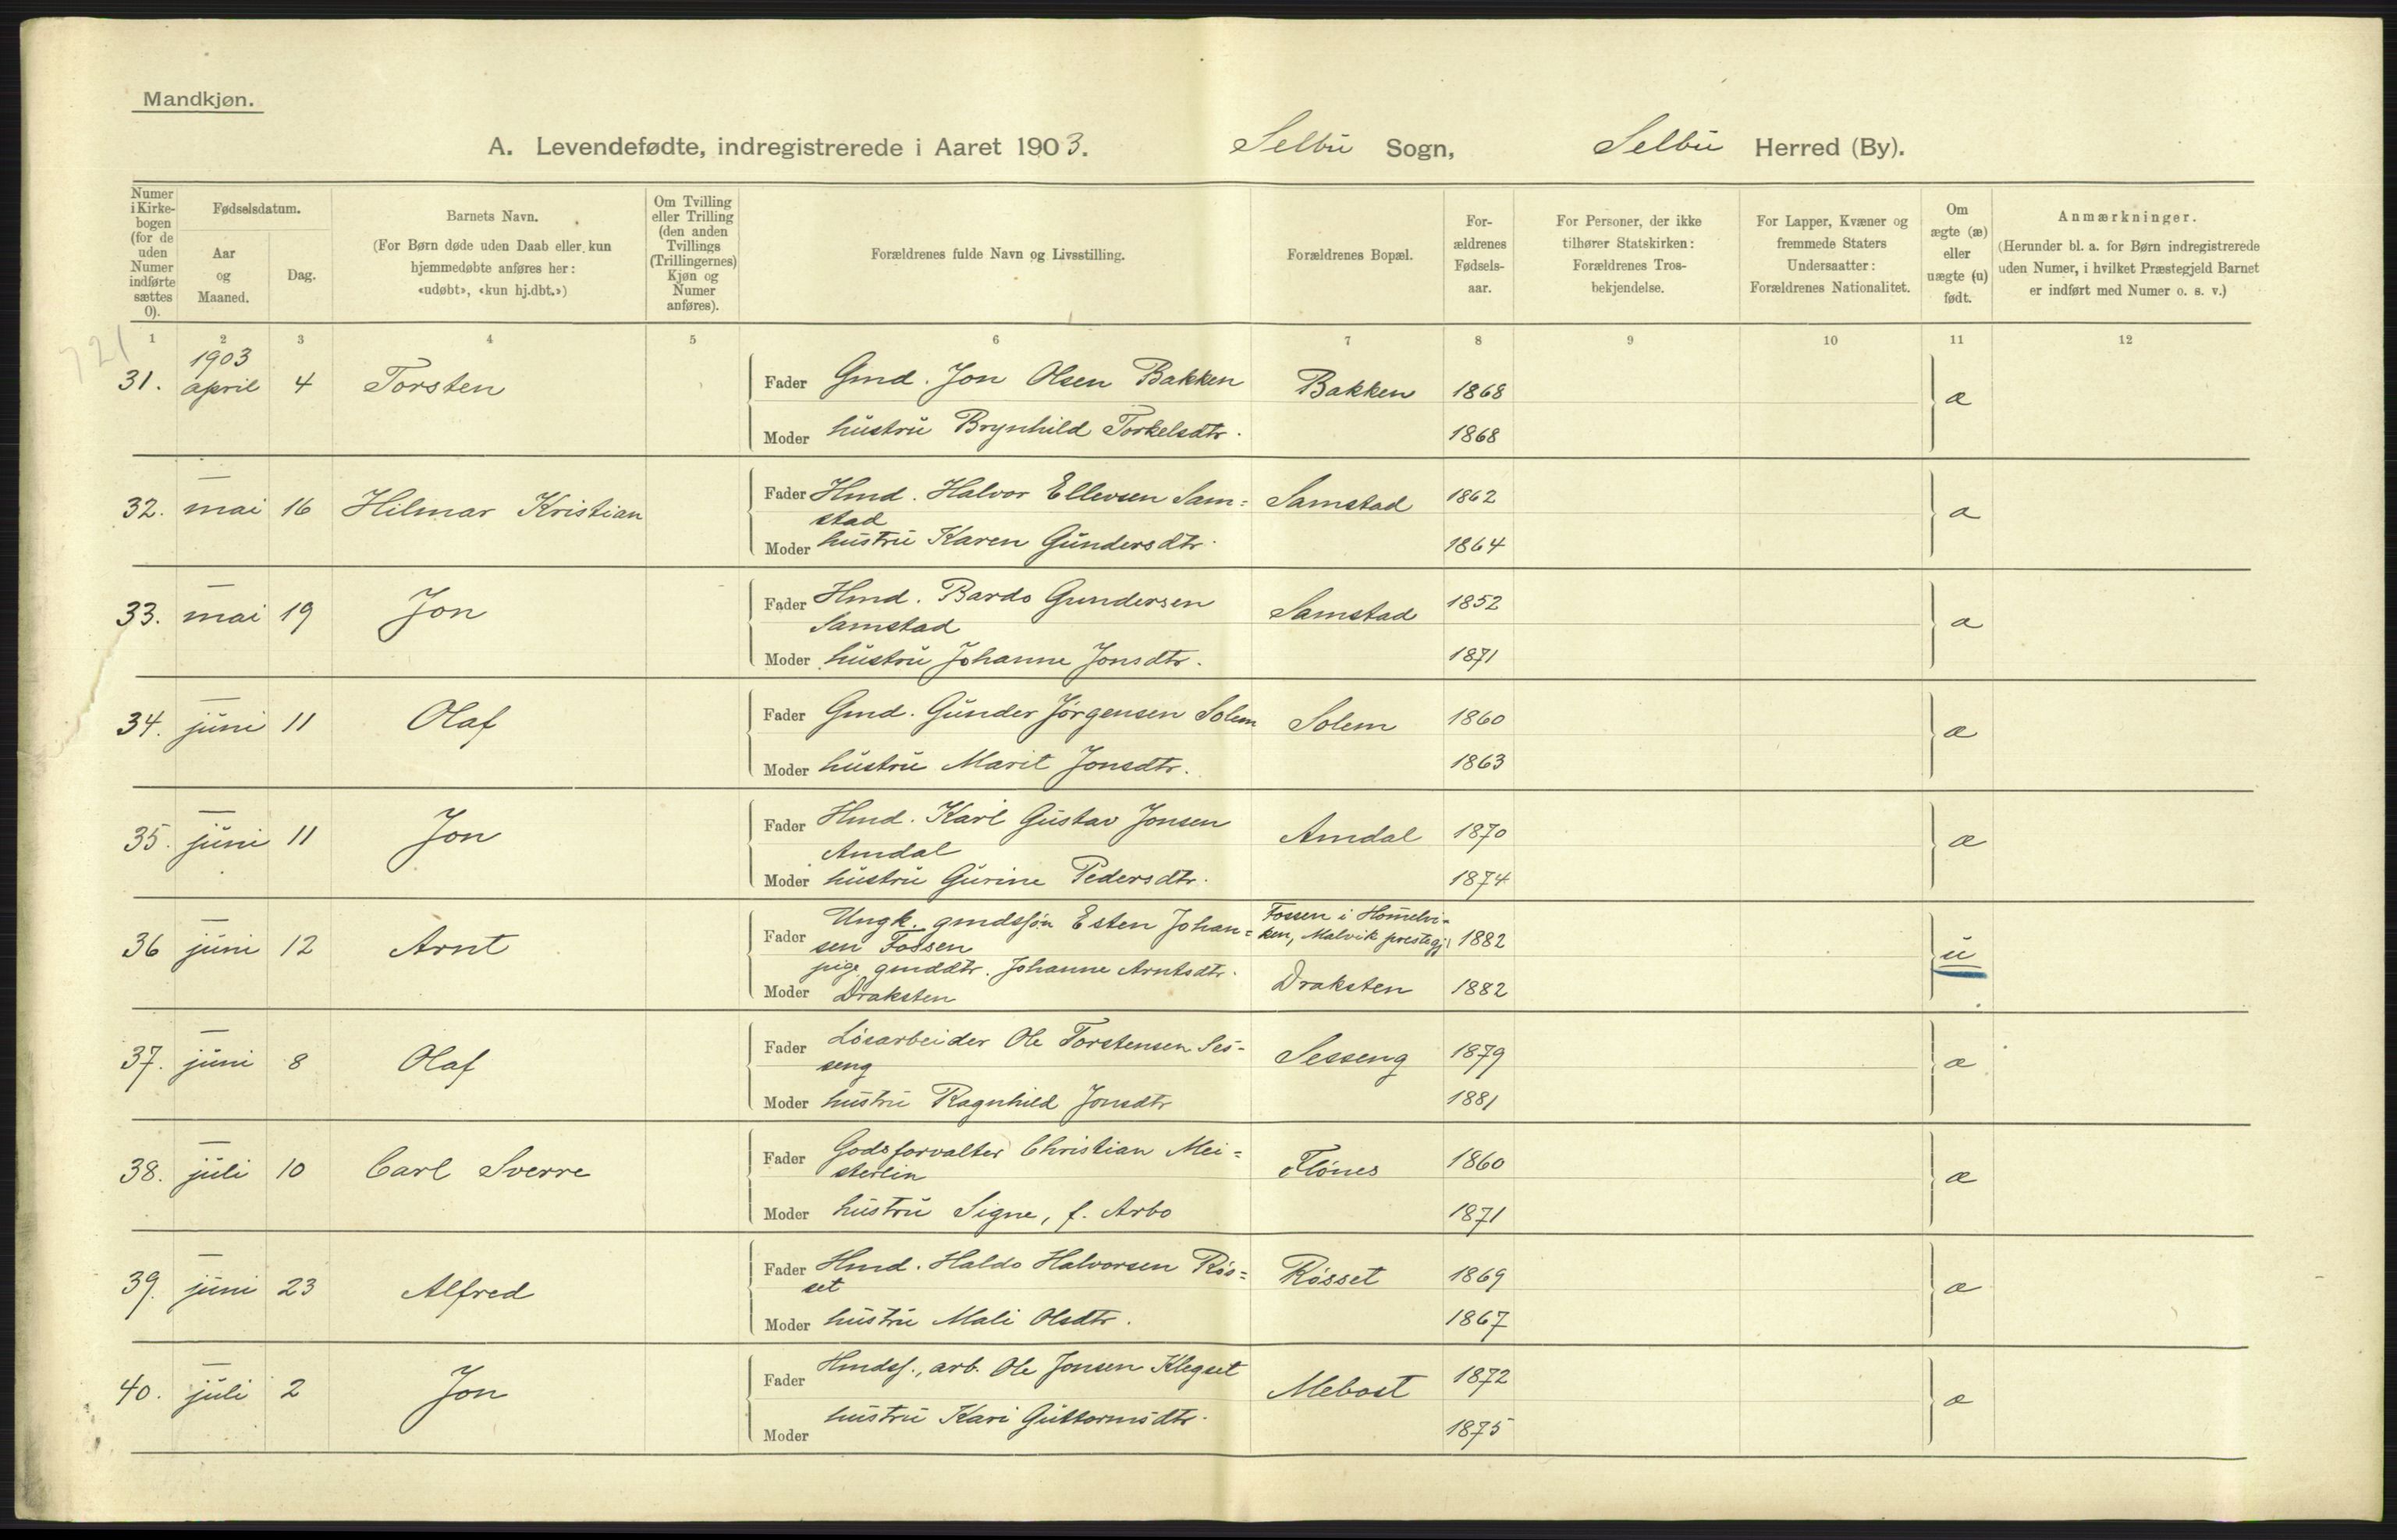 Mandkjøn.
A. Levendefødte, indregistrerede i Aaret 1903. Selbu Sogn, Selbu Herred (By).
Numer i Kirkebogen (for de uden Numer indførte sættes 0).
Fødselsdatum.
Aar og Maaned.
Dag.
Barnets Navn.
(For Børn døde uden Daab eller kun hjemmedøbte anføres her: «udøbt», «kun hj.dbt.»)
Om Tvilling eller Trilling (den anden Tvillings (Trillingernes) Kjøn og Numer anføres).
Forældrenes fulde Navn og Livsstilling.
Forældrenes Bopæl.
Forældrenes Fødselsaar.
For Personer, der ikke tilhører Statskirken: Forældrenes Trosbekjendelse.
For Lapper, Kvæner og fremmede Staters Undersaatter: Forældrenes Nationalitet.
Om ægte (æ) eller uægte (u) født.
Anmærkninger.
(Herunder bl. a. for Børn indregistrerede uden Numer, i hvilket Præstegjeld Barnet er indført med Numer o. s. v.)
1 2 3 4 5 6 7 8 9 10 11 12
721
1903
31. april 4 Torsten Fader Gmd. Jon Olsen Bakken Bakken 1868 æ
Moder hustru Brynhild Torkelsdtr. 1868
32. — mai 16 Hilmar Kristian Fader Hmd. Halvor Ellevsen Sam= Samstad 1862 æ
stad
Moder hustru Karen Gundersdtr. 1864
33. — mai 19 Jon Fader Hmd. Bardo Gundersen Samstad 1852 æ
Samstad
Moder hustru Johanne Jonsdtr. 1871
34. — juni 11 Olaf Fader Gmd. Gunder Jørgensen Solem Solem 1860 æ
Moder hustru Marit Jonsdtr. 1863
35. — juni 11 Jon Fader Hmd. Karl Gustav Jonsen Amdal 1870 æ
Amdal
Moder hustru Gurine Pedersdtr. 1874
36 — juni 12 Arnt Fader Ungk. gmdssøn Esten Johan= Fossen i Hom̄elvi= u
sen Fossen ken, Malvik prestegj. 1882
pige gmddtr. Johanne Arntsdtr.
Moder Draksten Draksten 1882
37. — juni 8 Olaf Fader Løsarbeider Ole Torstensen Ses= Sesseng 1879 æ
seng
Moder hustru Ragnhild Jonsdtr 1881
38. — juli 10 Carl Sverre Fader Godsforvalter Christian Mei= Flönes 1860 æ
sterlin
Moder hustru Signe, f. Arbo 1871
39. — juni 23 Alfred Fader Hmd. Haldo Halvorsen Røs= Røsset 1869 æ
set
Moder hustru Mali Olsdtr. 1867
40. — juli 2 Jon Fader Hmdss., arb. Ole Jonsen Klegset Mebost 1872 æ
Moder hustru Kari Guttormsdtr. 1875